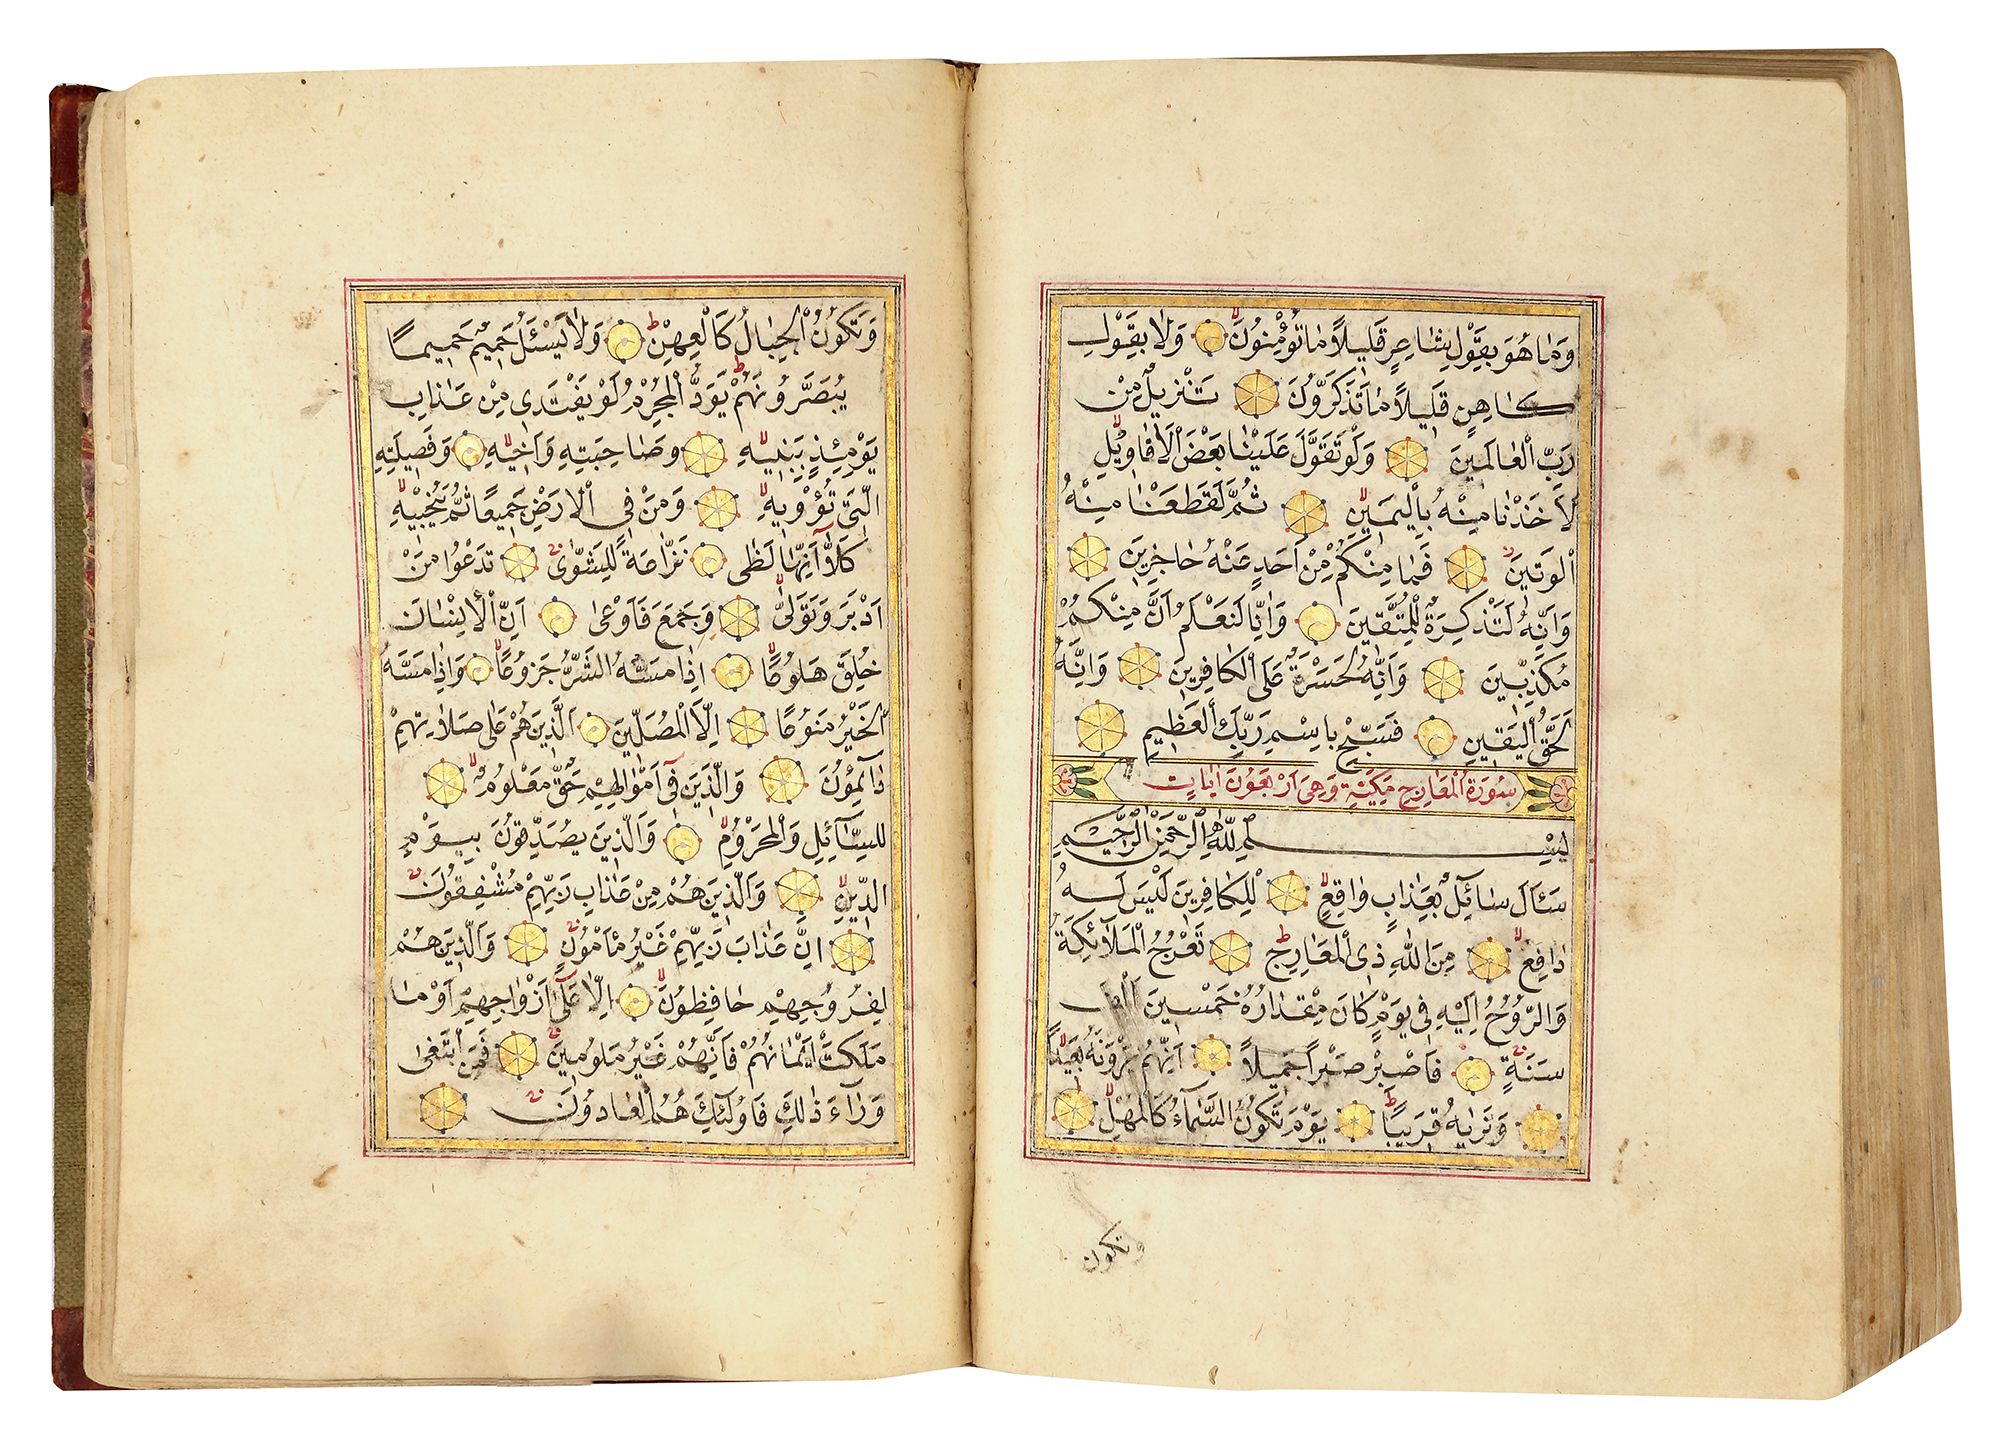 وَمٰا هُوَ بِقَوْلِ شٰاعِرٍ قَلٖيلًا مٰا تُؤْمِنُونَ وَلٰا بِقَوْلِ
كٰاهِنٍ قَلٖيلًا مٰا تَذَكَّرُونَ تَنْزٖيلٌ مِنْ
رَبِّ الْعٰالَمٖينَ وَلَوْ تَقَوَّلَ عَلَيْنٰا بَعْضَ الْاَقٰاوٖيلِ
لَاَخَذْنٰا مِنْهُ بِالْيَمٖينِ ثُمَّ لَقَطَعْنٰا مِنْهُ
الْوَتٖينَ فَمٰا مِنْكُمْ مِنْ اَحَدٍ عَنْهُ حٰاجِزٖينَ
وَاِنَّهُ لَتَذْكِرَةٌ لِلْمُتَّقٖينَ وَاِنّٰا لَنَعْلَمُ اَنَّ مِنْكُمْ
مُكَذِّبٖينَ وَاِنَّهُ لَحَسْرَةٌ عَلَى الْكٰافِرٖينَ وَاِنَّهُ
لَحَقُّ الْيَقٖينِ فَسَبِّحْ بِاسْمِ رَبِّكَ الْعَظٖيمِ
سُورَةُ الْمَعٰارِجِ مَكِّيَّةٌ وَهِيَ اَرْبَعُونَ اٰيٰاتٍ
بِسْمِ اللّٰهِ الرَّحْمٰنِ الرَّحٖيمِ
سَئَالَ سٰآئِلٌ بِعَذٰابٍ وٰاقِعٍ لِلْكٰافِرٖينَ لَيْسَ لَهُ
دٰافِعٌ مِنَ اللّٰهِ ذِي الْمَعٰارِجِ تَعْرُجُ الْمَلٰآئِكَةُ
وَالرُّوحُ اِلَيْهِ فٖي يَوْمٍ كٰانَ مِقْدٰارُهُ خَمْسٖينَ اَلْفَ
سَنَةٍ فَاصْبِرْ صَبْرًا جَمٖيلًا اِنَّهُمْ يَرَوْنَهُ بَعٖيدًا
وَنَرٰيهُ قَرٖيبًا يَوْمَ تَكُونُ السَّمٰآءُ كَالْمُهْلِ
وتكون
وَتَكُونُ الْجِبٰالُ كَالْعِهْنِ وَلٰا يَسْئَلُ حَمٖيمٌ حَمٖيمًا
يُبَصَّرُونَهُمْ يَوَدُّ الْمُجْرِمُ لَوْ يَفْتَدٖي مِنْ عَذٰابِ
يَوْمِئِذٍ بِبَنٖيهِ وَصٰاحِبَتِهِ وَاَخٖيهِ وَفَصٖيلَتِهِ
الَّتٖي تُؤْوٖيهِ وَمَنْ فِي الْاَرْضِ جَمٖيعًا ثُمَّ يُنْجٖيهِ
كَلّٰا اِنَّهٰا لَظٰى نَزّٰاعَةً لِلشَّوٰى تَدْعُوا مَنْ
اَدْبَرَ وَتَوَلّٰى وَجَمَعَ فَاَوْعٰى اِنَّ الْاِنْسٰانَ
خُلِقَ هَلُوعًا اِذٰا مَسَّهُ الشَّرُّ جَزُوعًا وَاِذٰا مَسَّهُ
الْخَيْرُ مَنُوعًا اِلَّا الْمُصَلّٖينَ اَلَّذٖينَ هُمْ عَلٰى صَلٰاتِهِمْ
دٰآئِمُونَ وَالَّذٖينَ فٖي اَمْوٰالِهِمْ حَقٌّ مَعْلُومٌ
لِلسّٰآئِلِ وَالْمَحْرُومِ وَالَّذٖينَ يُصَدِّقُونَ بِيَوْمِ
الدّٖينِ وَالَّذٖينَ هُمْ مِنْ عَذٰابِ رَبِّهِمْ مُشْفِقُونَ
اِنَّ عَذٰابَ رَبِّهِمْ غَيْرُ مَاْمُونٍ وَالَّذٖينَ هُمْ
لِفُرُوجِهِمْ حٰافِظُونَ اِلّٰا عَلٰى اَزْوٰاجِهِمْ اَوْ مٰا
مَلَكَتْ اَيْمٰانُهُمْ فَاِنَّهُمْ غَيْرُ مَلُومٖينَ فَمَنِ ابْتَغٰى
وَرٰآءَ ذٰلِكَ فَاُولٰئِكَ هُمُ الْعٰادُونَ